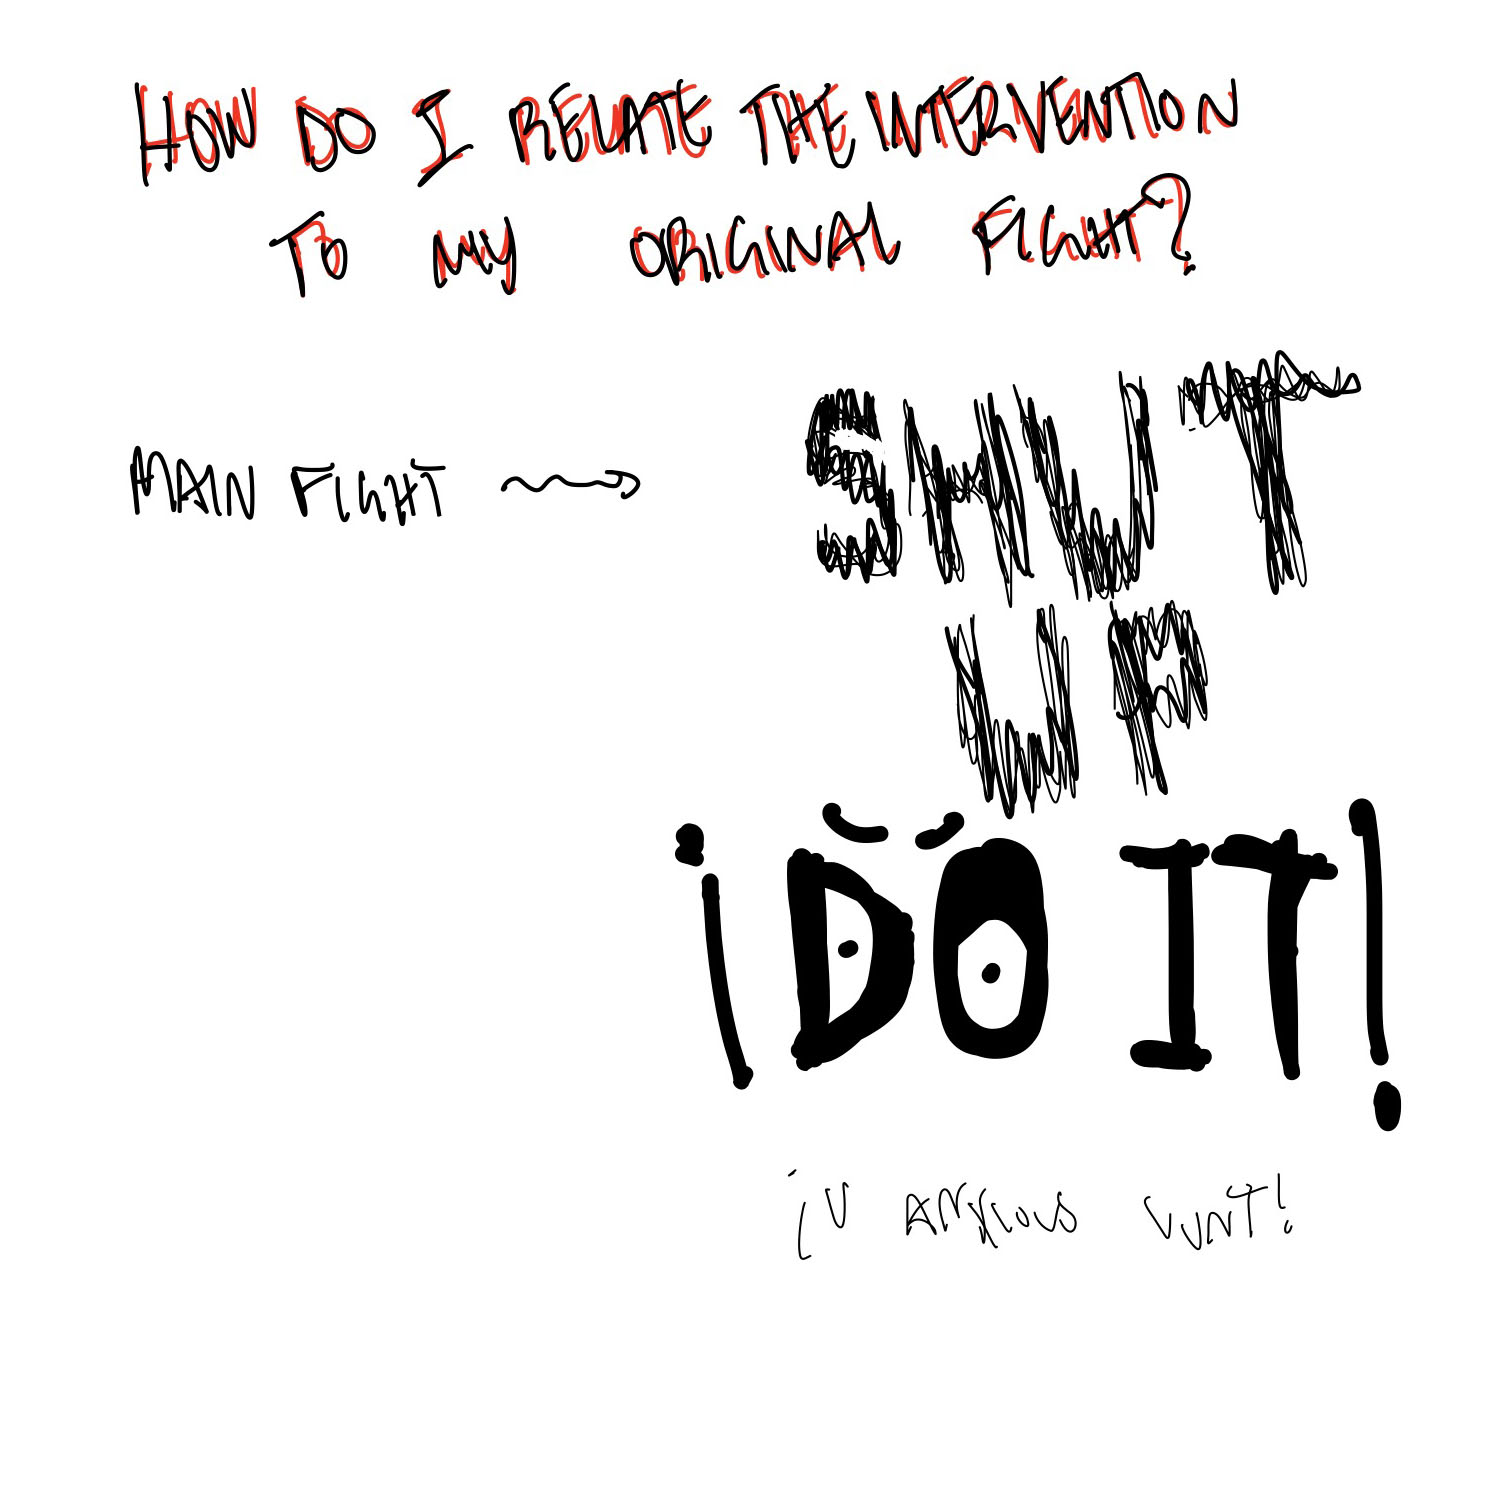 HOW DO I RELATE THE INTERVENTION
TO MY ORIGINAL FIGHT?
MAIN FIGHT
SHUT
UP
¡DO IT!
¡U ANXIOUS CUNT!